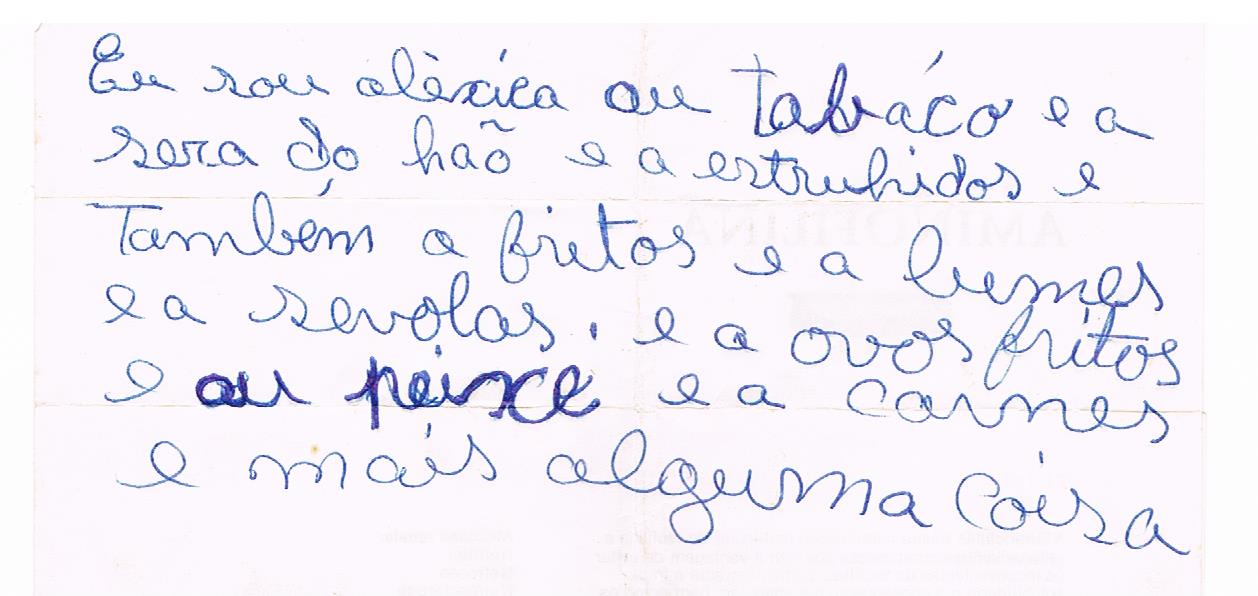 Eu sou alèxica au tabáco e a
sera do haõ e a estruhidos e
também a fritos e a lumes
e a sevolas. e a ovos fritos
e au peixe e a carnes
e mais alguma coisa
AMINOFILINA